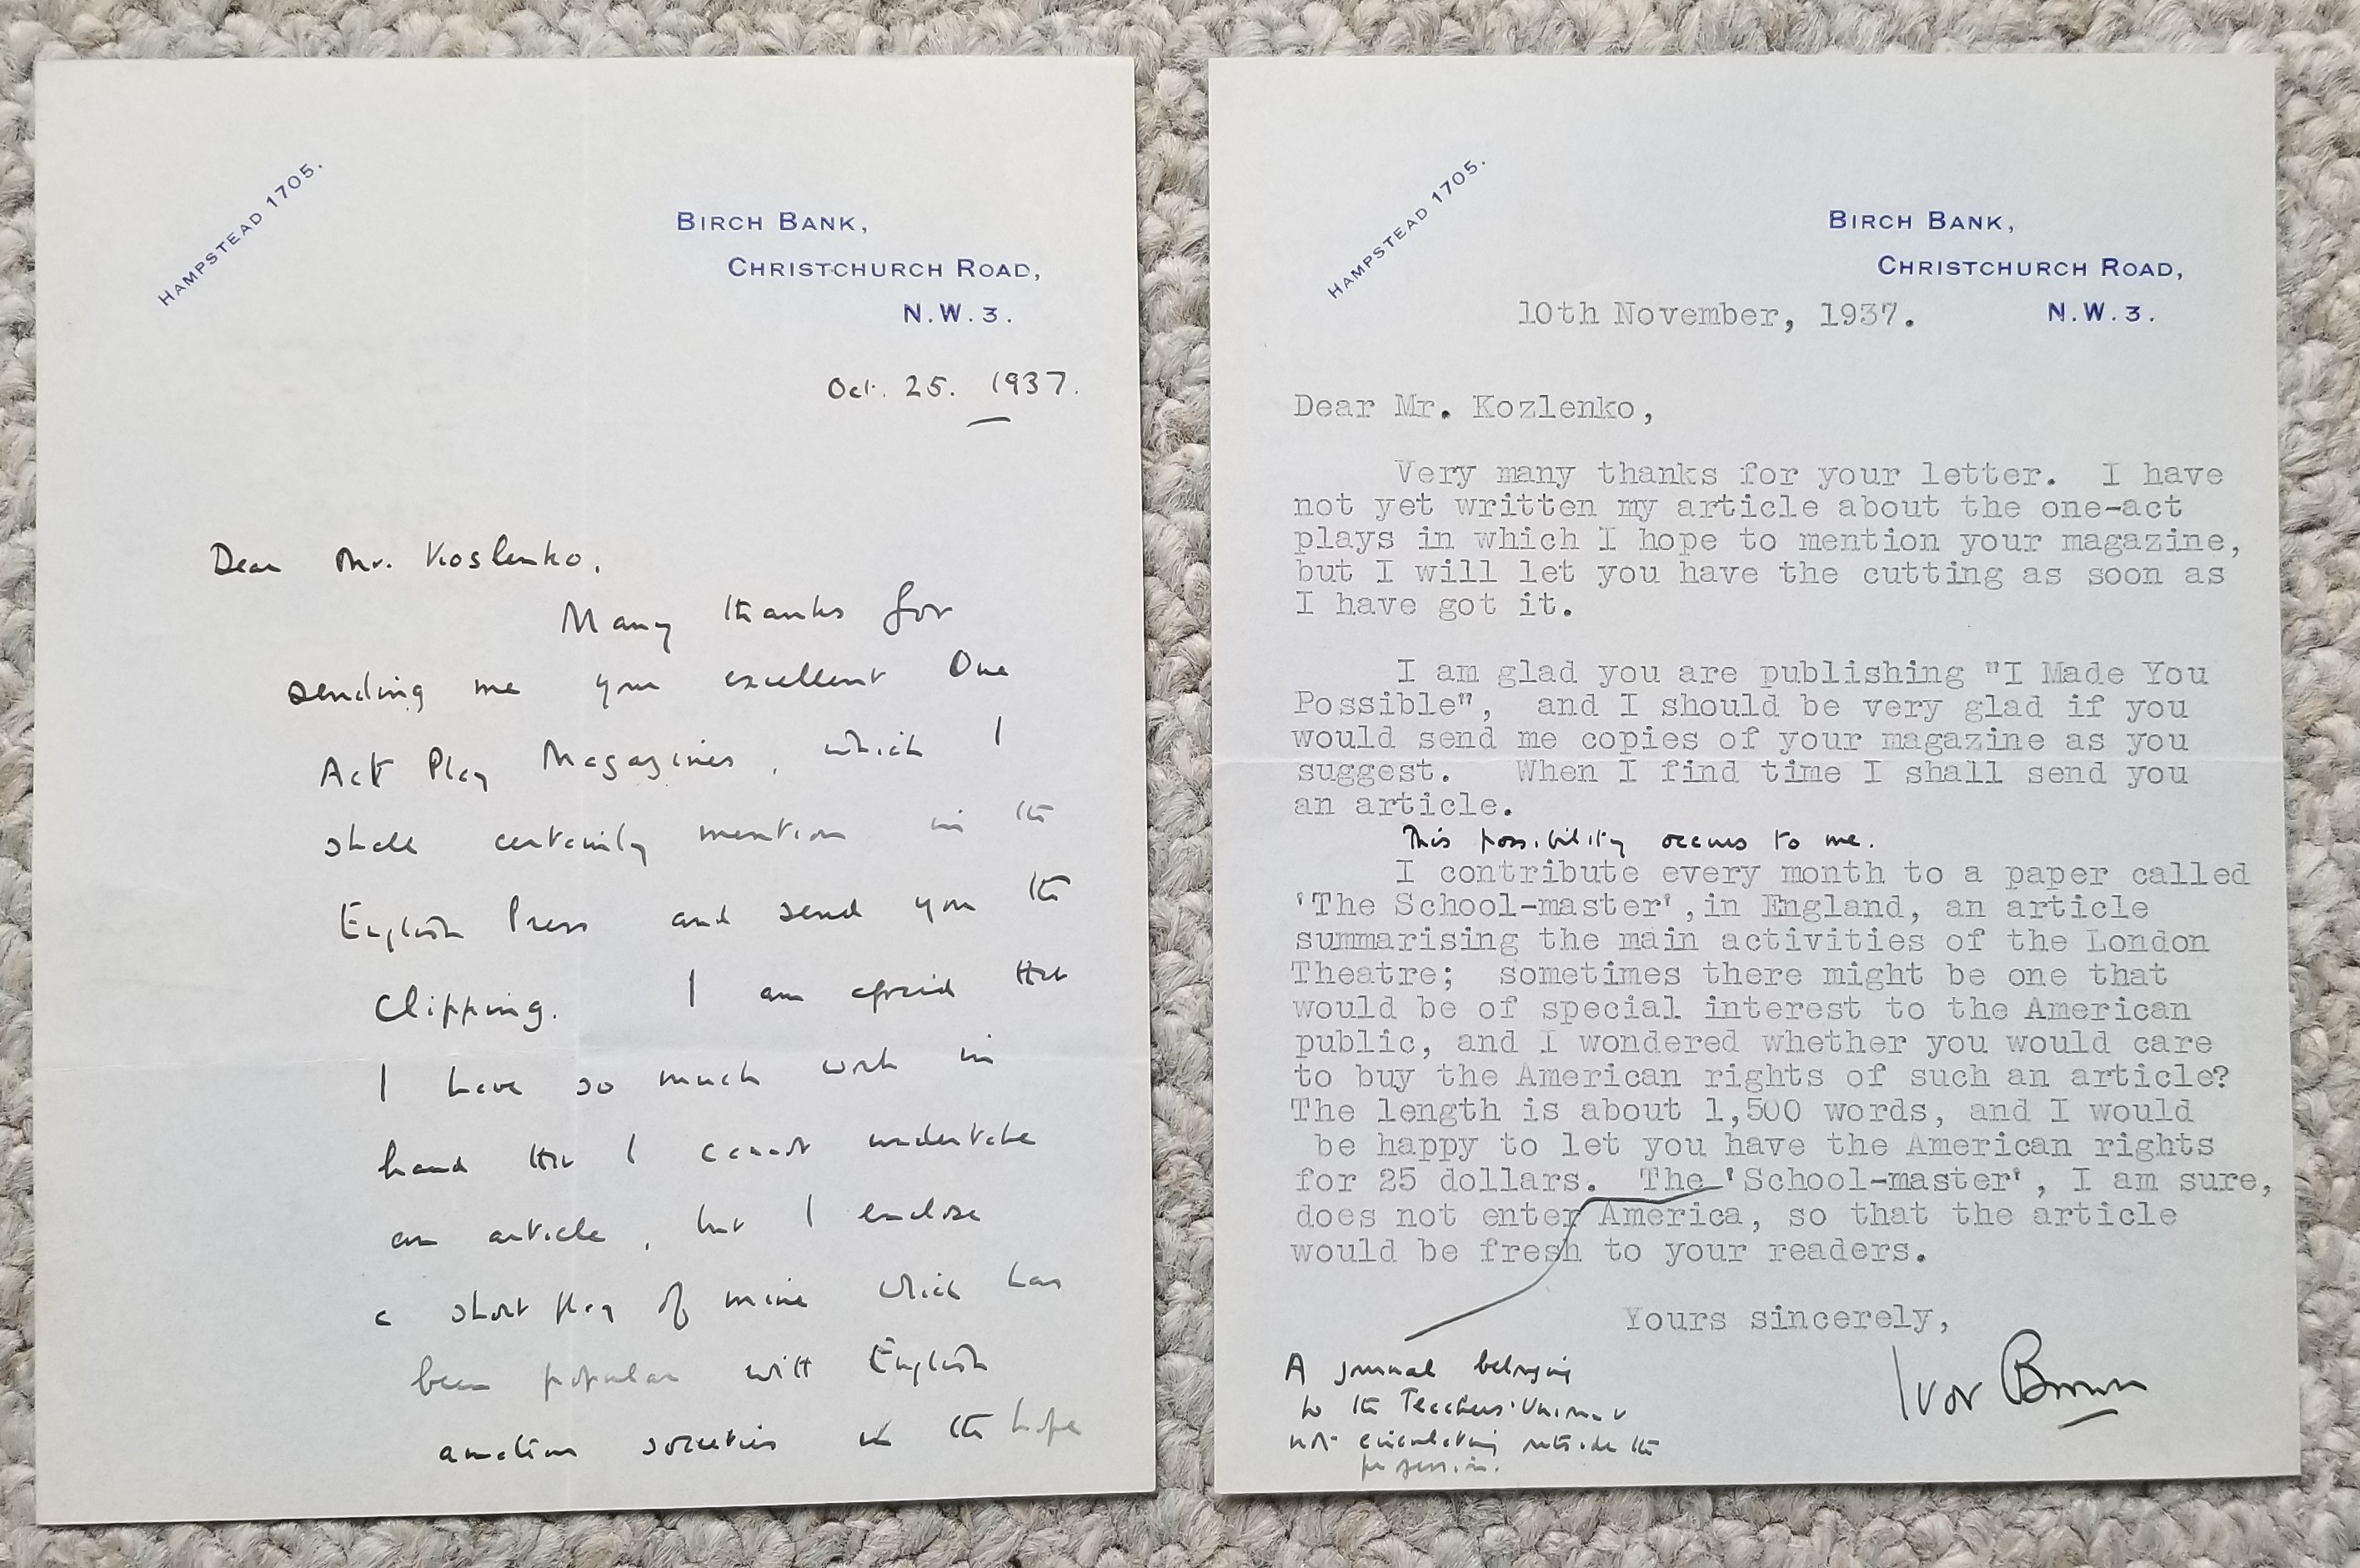 HAMPSTEAD 1705.
BIRCH BANK,
CHRISTCHURCH ROAD,
N.W.3.
Oct. 25. 1937.
Dear Mr. Koslenko,
Many thanks for
sending me your excellent One
Act Play Magazines, which I
shall certainly mention in the
English Press and send you the
clipping. I am afraid that
I have so much work in
hand that I cannot undertake
an article, but I enclose
a short play of mine which has
been popular with English
amateur societies in the hope
HAMPSTEAD 1705.
BIRCH BANK,
CHRISTCHURCH ROAD,
N.W.3.
10th November, 1937.
Dear Mr. Kozlenko,
Very many thanks for your letter. I have
not yet written my article about the one-act
plays in which I hope to mention your magazine,
but I will let you have the cutting as soon as
I have got it.
I am glad you are publishing "I Made You
Possible", and I should be very glad if you
would send me copies of your magazine as you
suggest. When I find time I shall send you
an article.
This possibility occurs to me.
I contribute every month to a paper called
'The School-master', in England, an article
summarising the main activities of the London
Theatre; sometimes there might be one that
would be of special interest to the American
public, and I wondered whether you would care
to buy the American rights of such an article?
The length is about 1,500 words, and I would
be happy to let you have the American rights
for 25 dollars. The 'School-master', I am sure,
does not enter America, so that the article
would be fresh to your readers.
Yours sincerely,
Ivor Brown
A journal belonging
to the Teachers' Union &
not circulating outside the
profession.